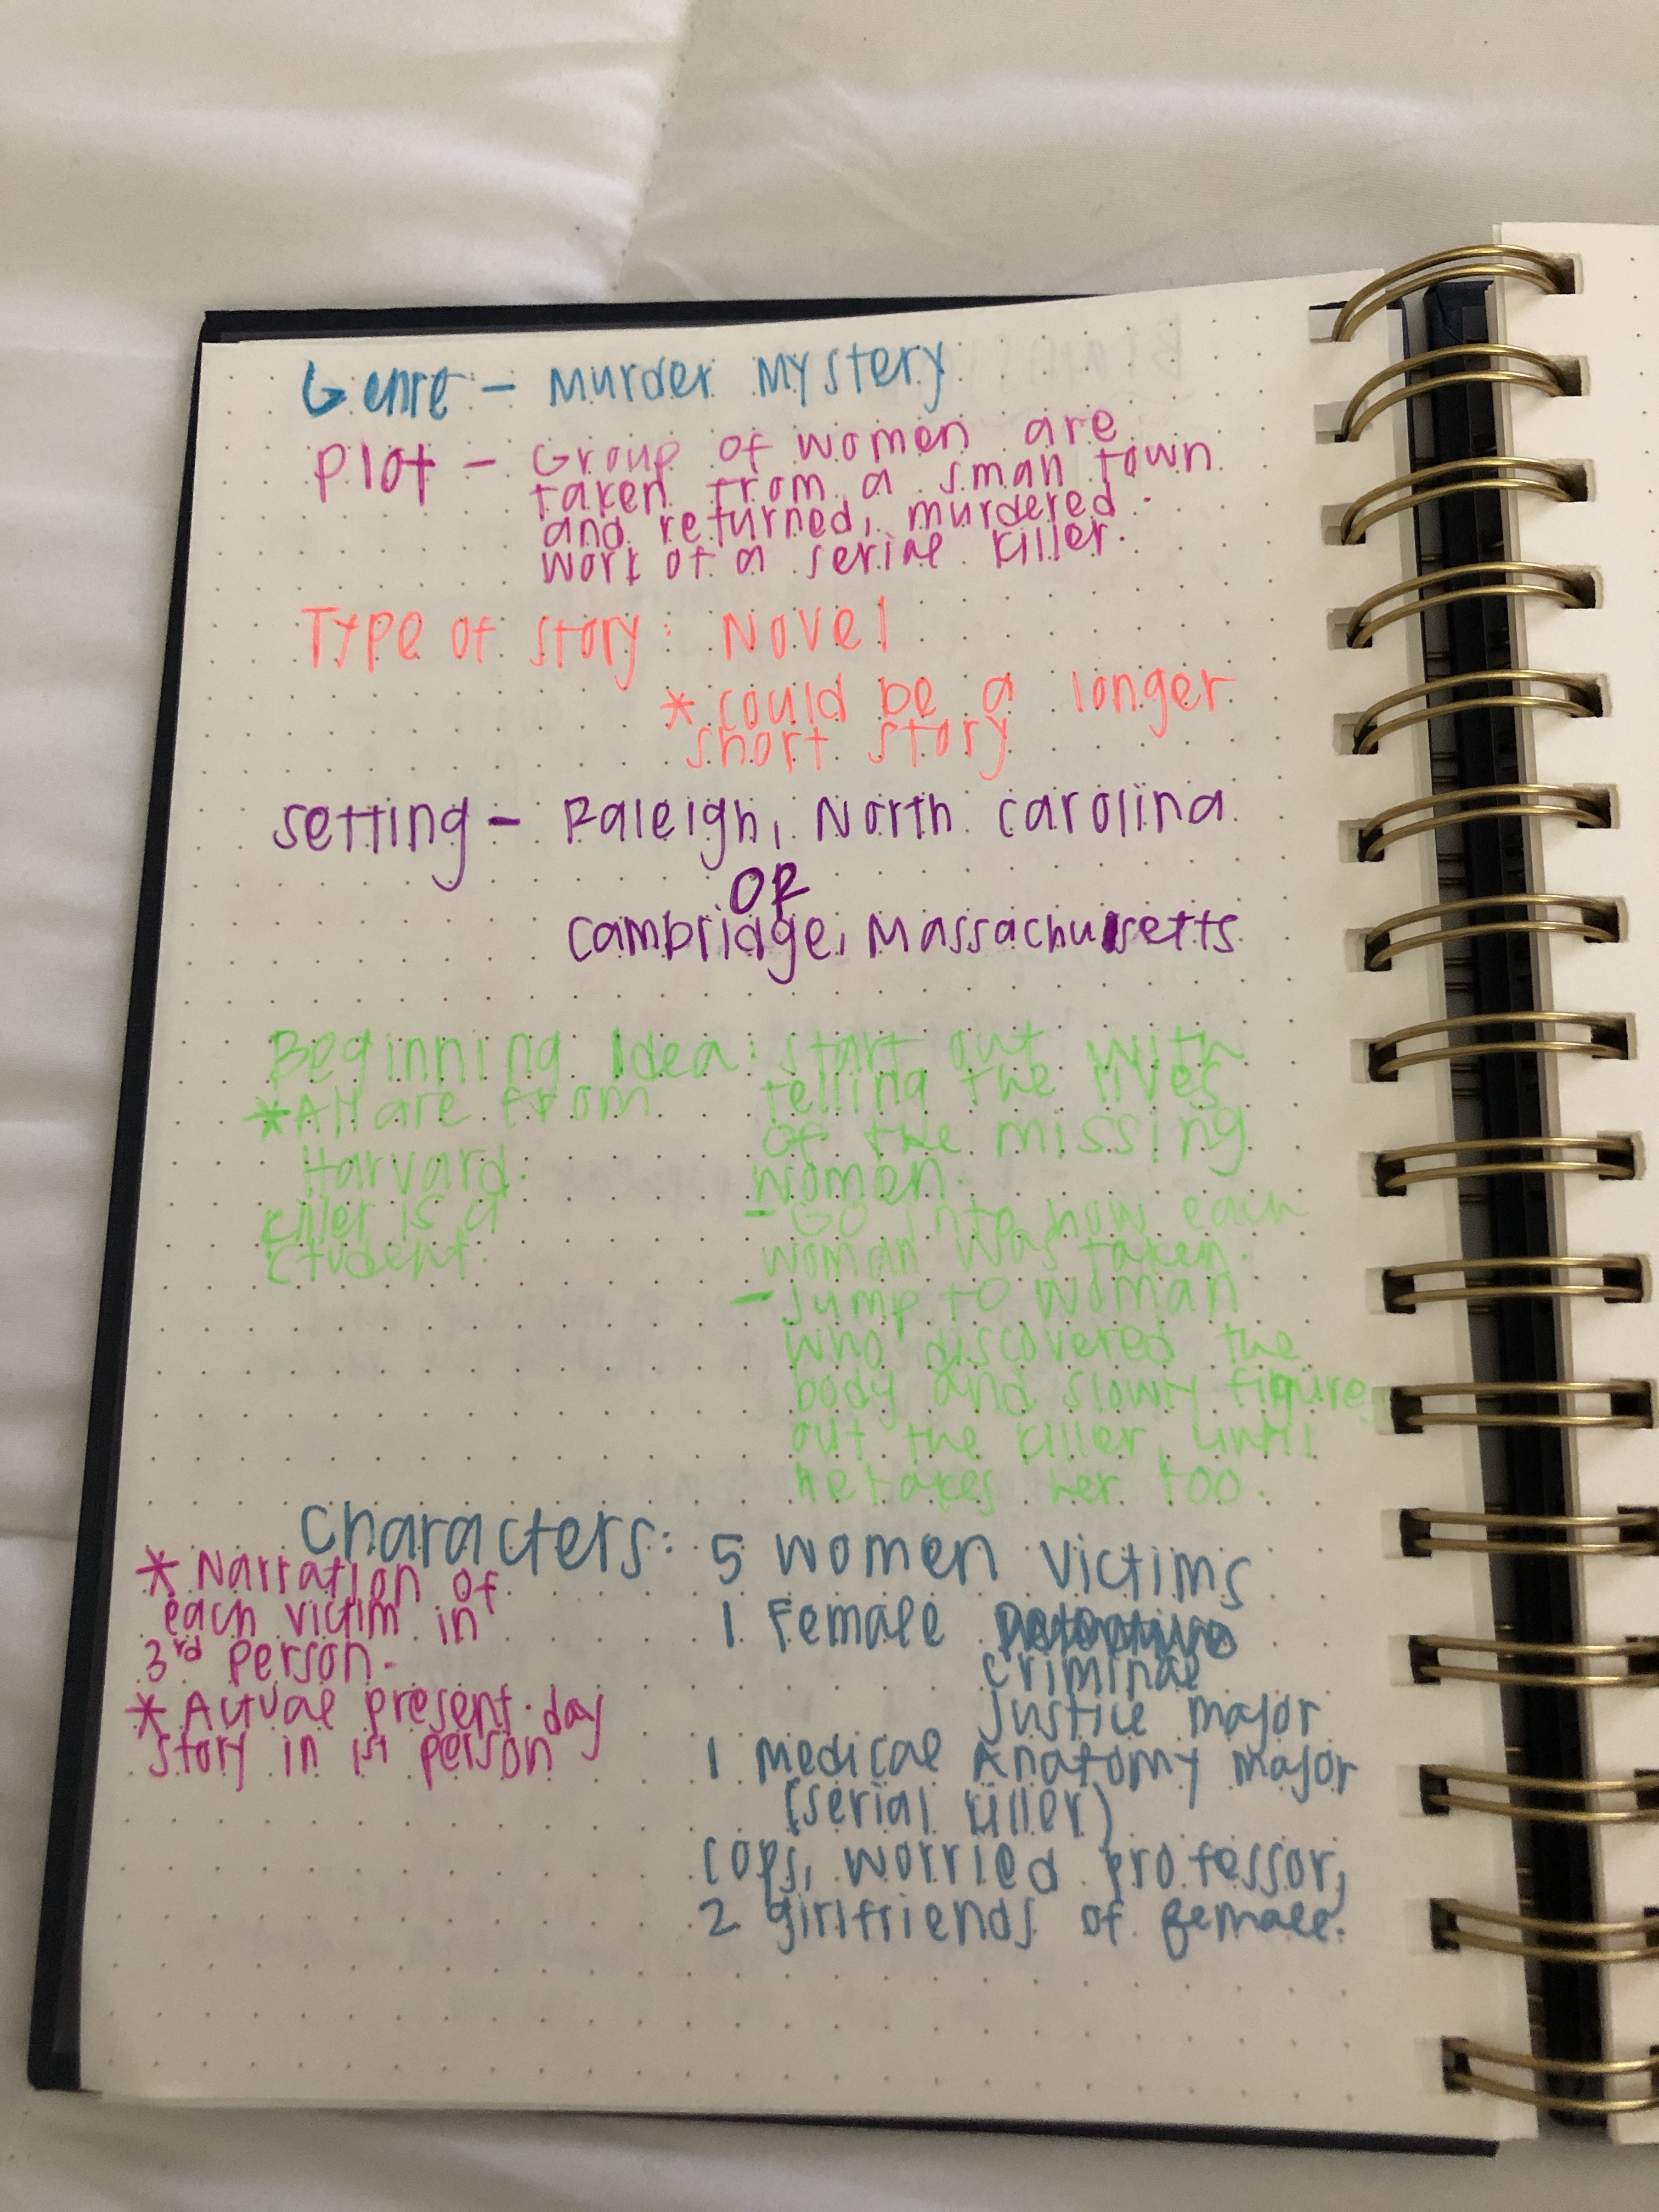 Genre - Murder Mystery
Plot - Group of women are
taken from a small town
and returned, murdered.
work of a serial killer.
Type of story: Novel
* could be a longer
short story
Setting - Raleigh, North Carolina
OR
Cambridge, Massachusetts
Beginning Idea: start out with
telling the lives
of the missing
women.
- Go into how each
woman was taken.
- Jump to woman
who discovered the
body and slowly figure
out the killer, until
he takes her too.
* All are from
Harvard.
killer is a
student.
Characters: 5 women victims
1 Female
criminal
justice major
1 Medical Anatomy major
(serial killer)
cops, worried professor,
2 girlfriends of female.
* Narration of
each victim in
3rd person.
* Actual present-day
story in 1st person